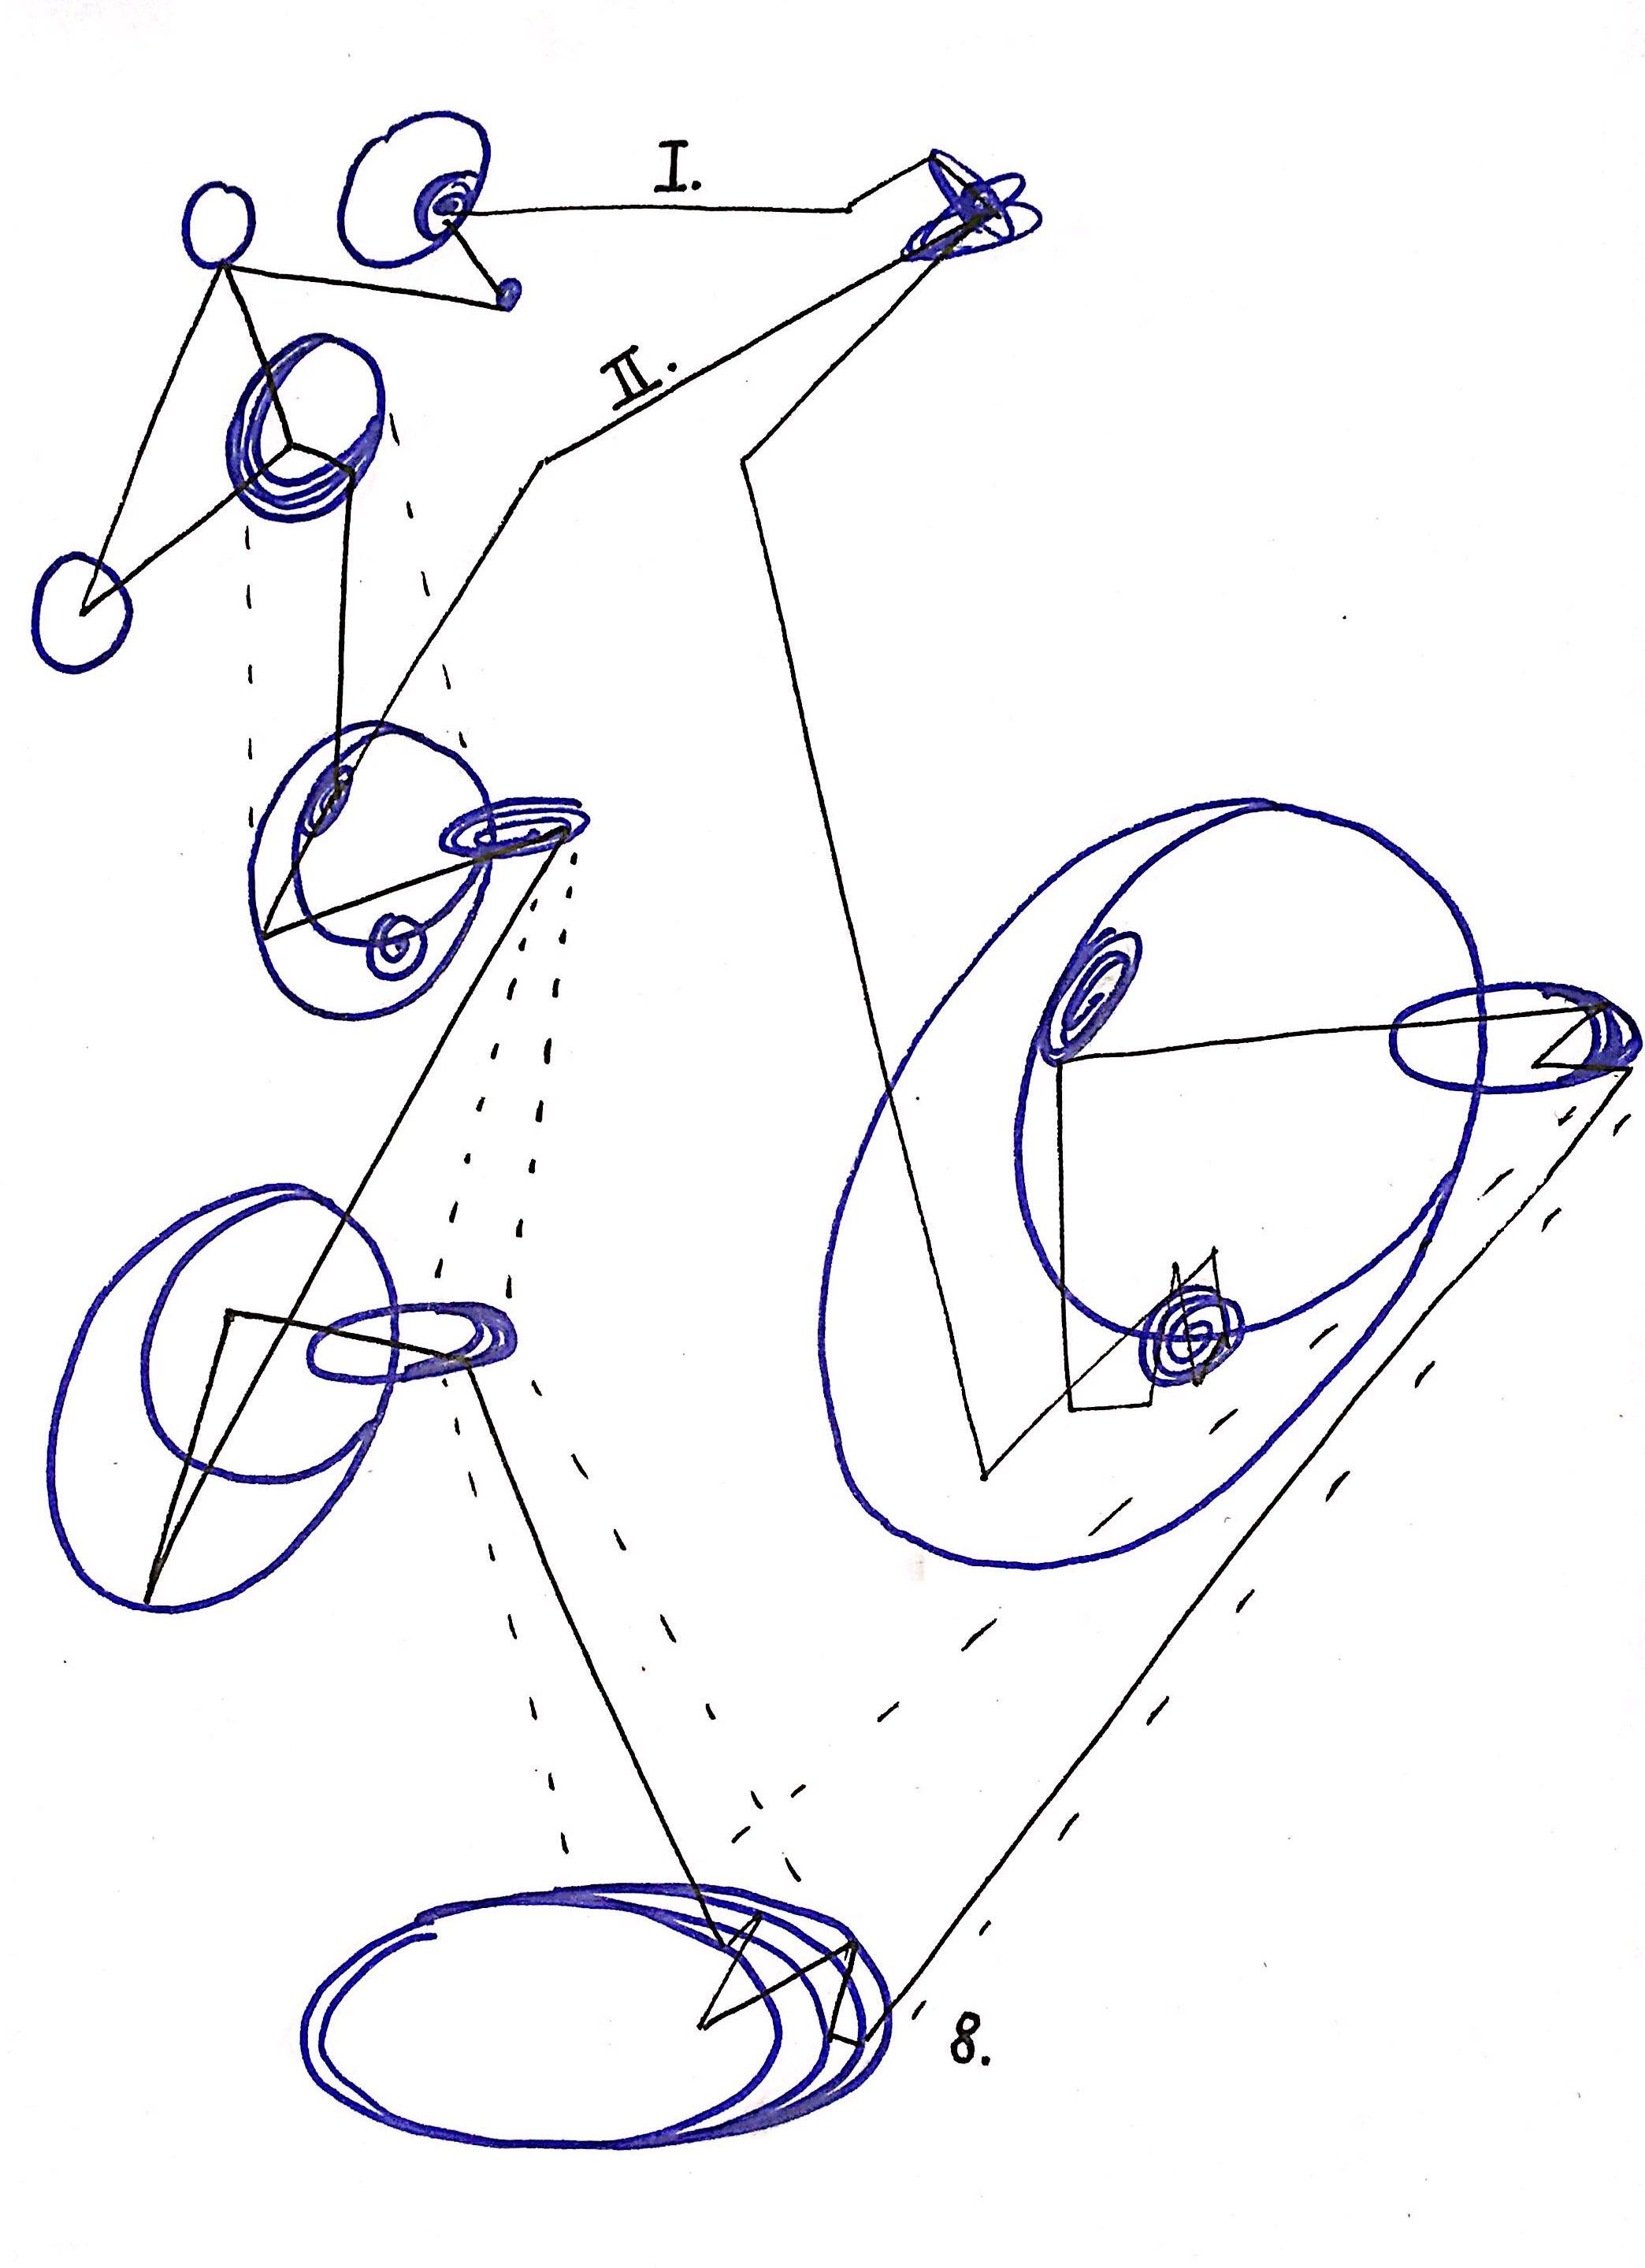 I.
II.
8.